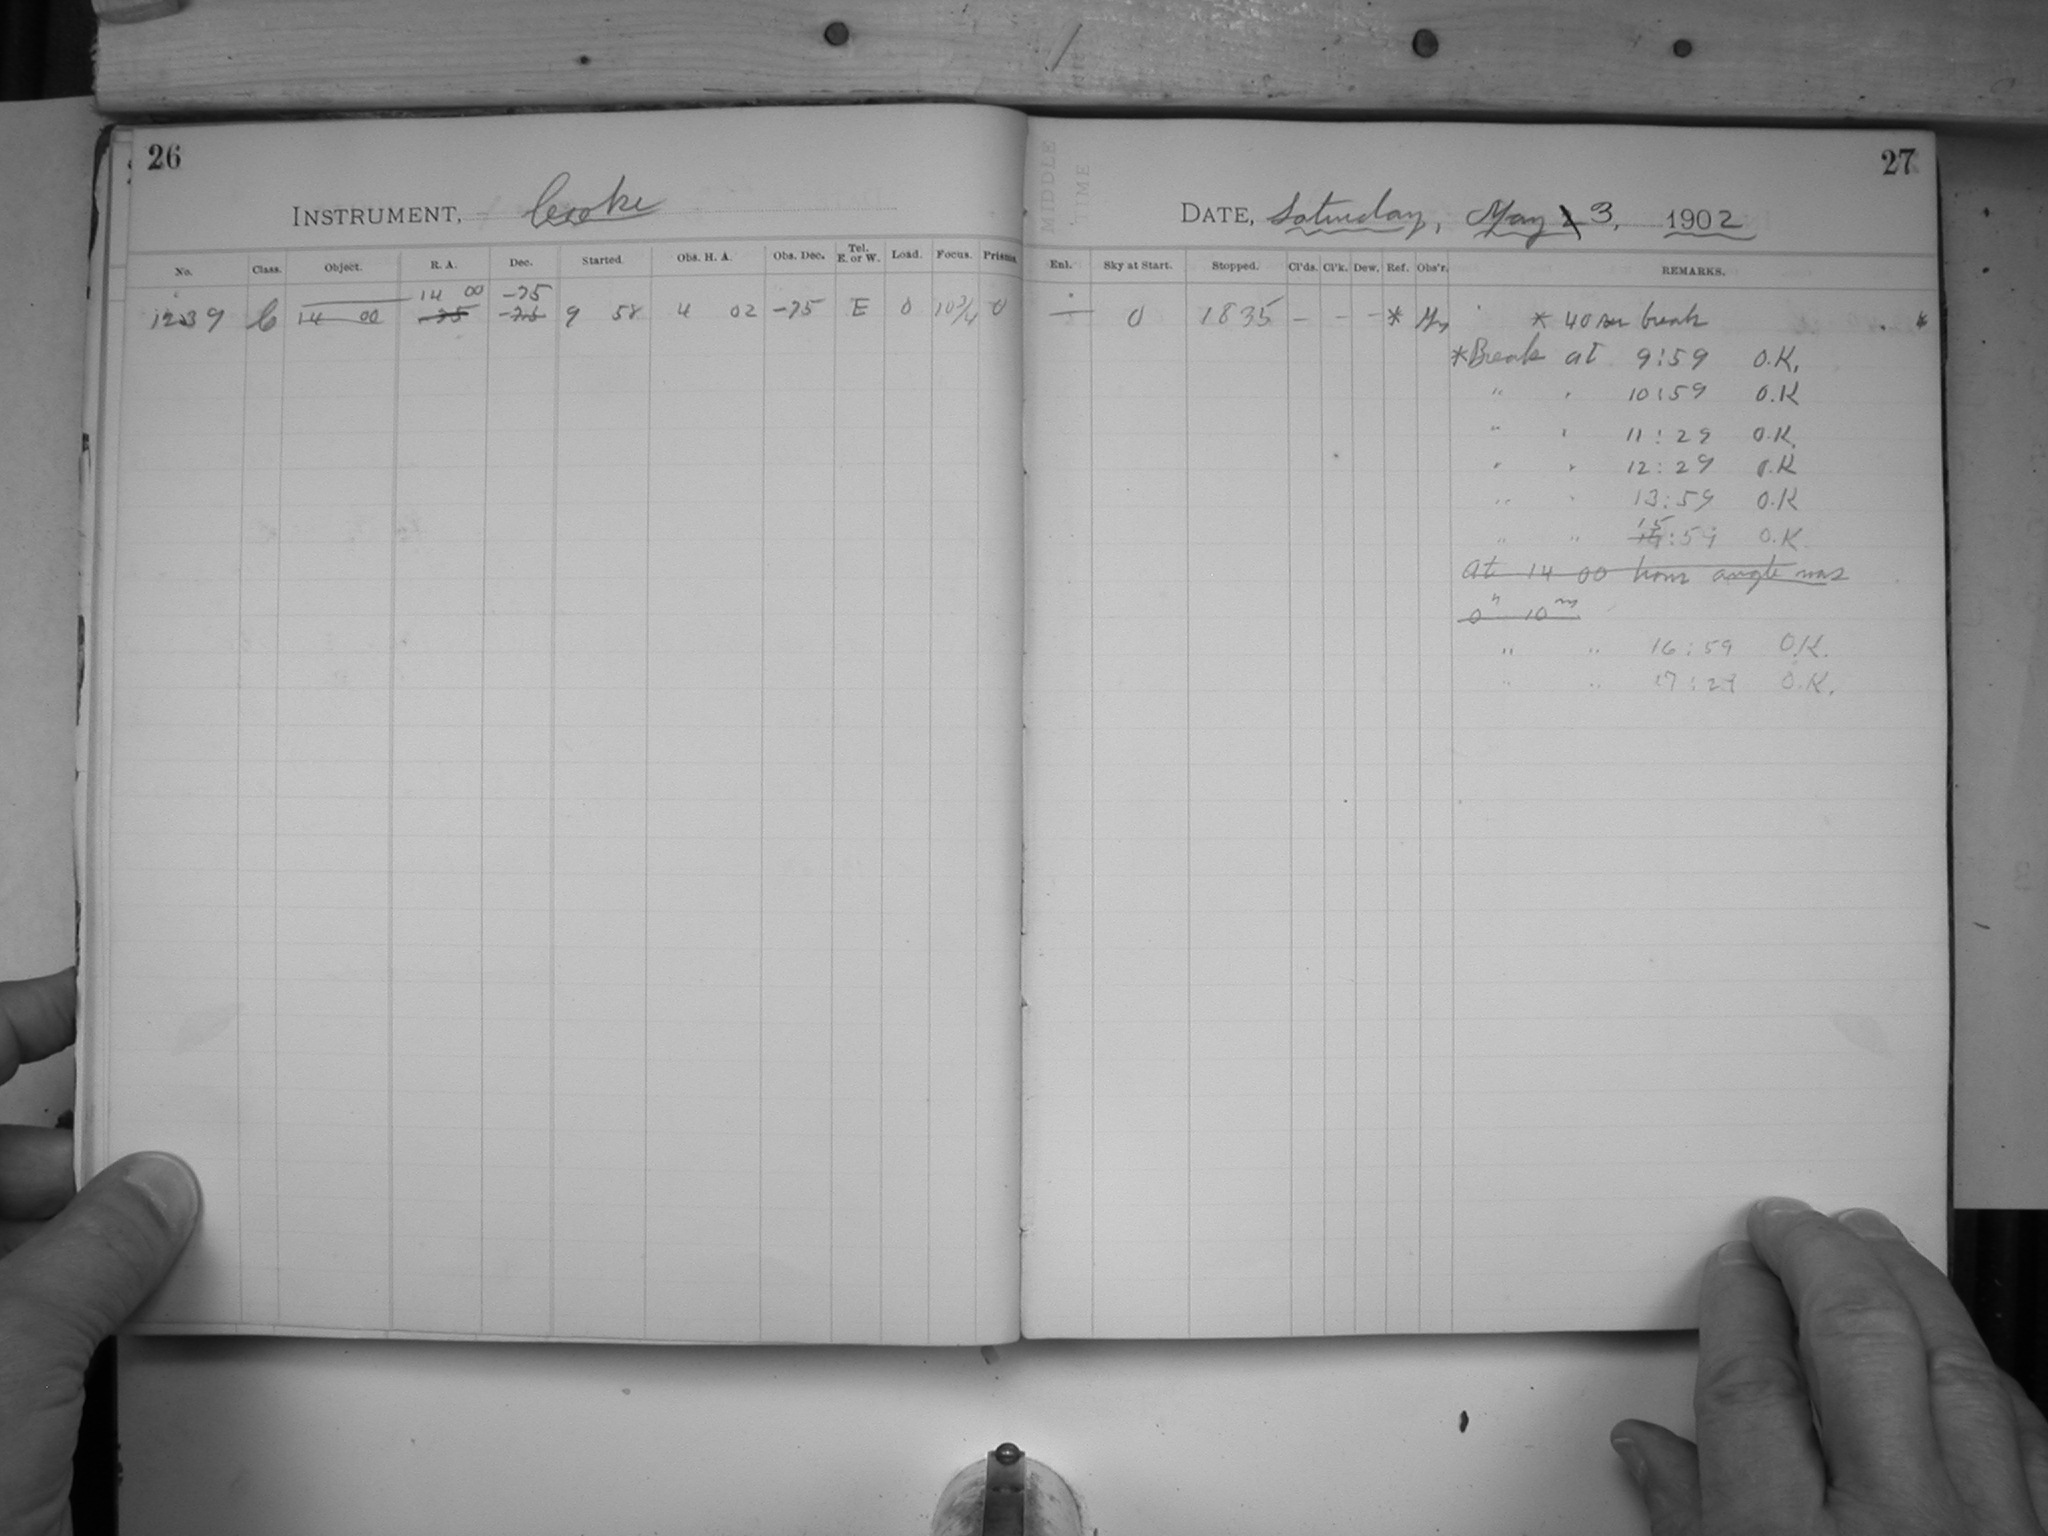 26
INSTRUMENT, Cooke
No. Class. Object. R. A. Dec. Started. Obs. H. A. Obs. Dec. Tel. E. or W. Load. Focus. Prisms.
14 00 -75
1239 C 14 00 -75 -75 9 58 4 02 -75 E 0 10 3/4 0
27
DATE, Saturday, May 2 3, 1902
Enl. Sky at Start. Stopped. Cl'ds. Cl'k. Dew. Ref. Obs'r. REMARKS.
— 0 1835 - - - * * 40 sec break *
*Break at 9:59 O.K.
" " 10:59 O.K
" " 11:29 O.K.
" " 12:29 O.K
" " 13:59 O.K
15
" " 14:59 O.K.
at 14 00 hour angle was
0h 10m
" " 16:59 O.K.
" " 17:29 O.K.
MIDDLE
TIME